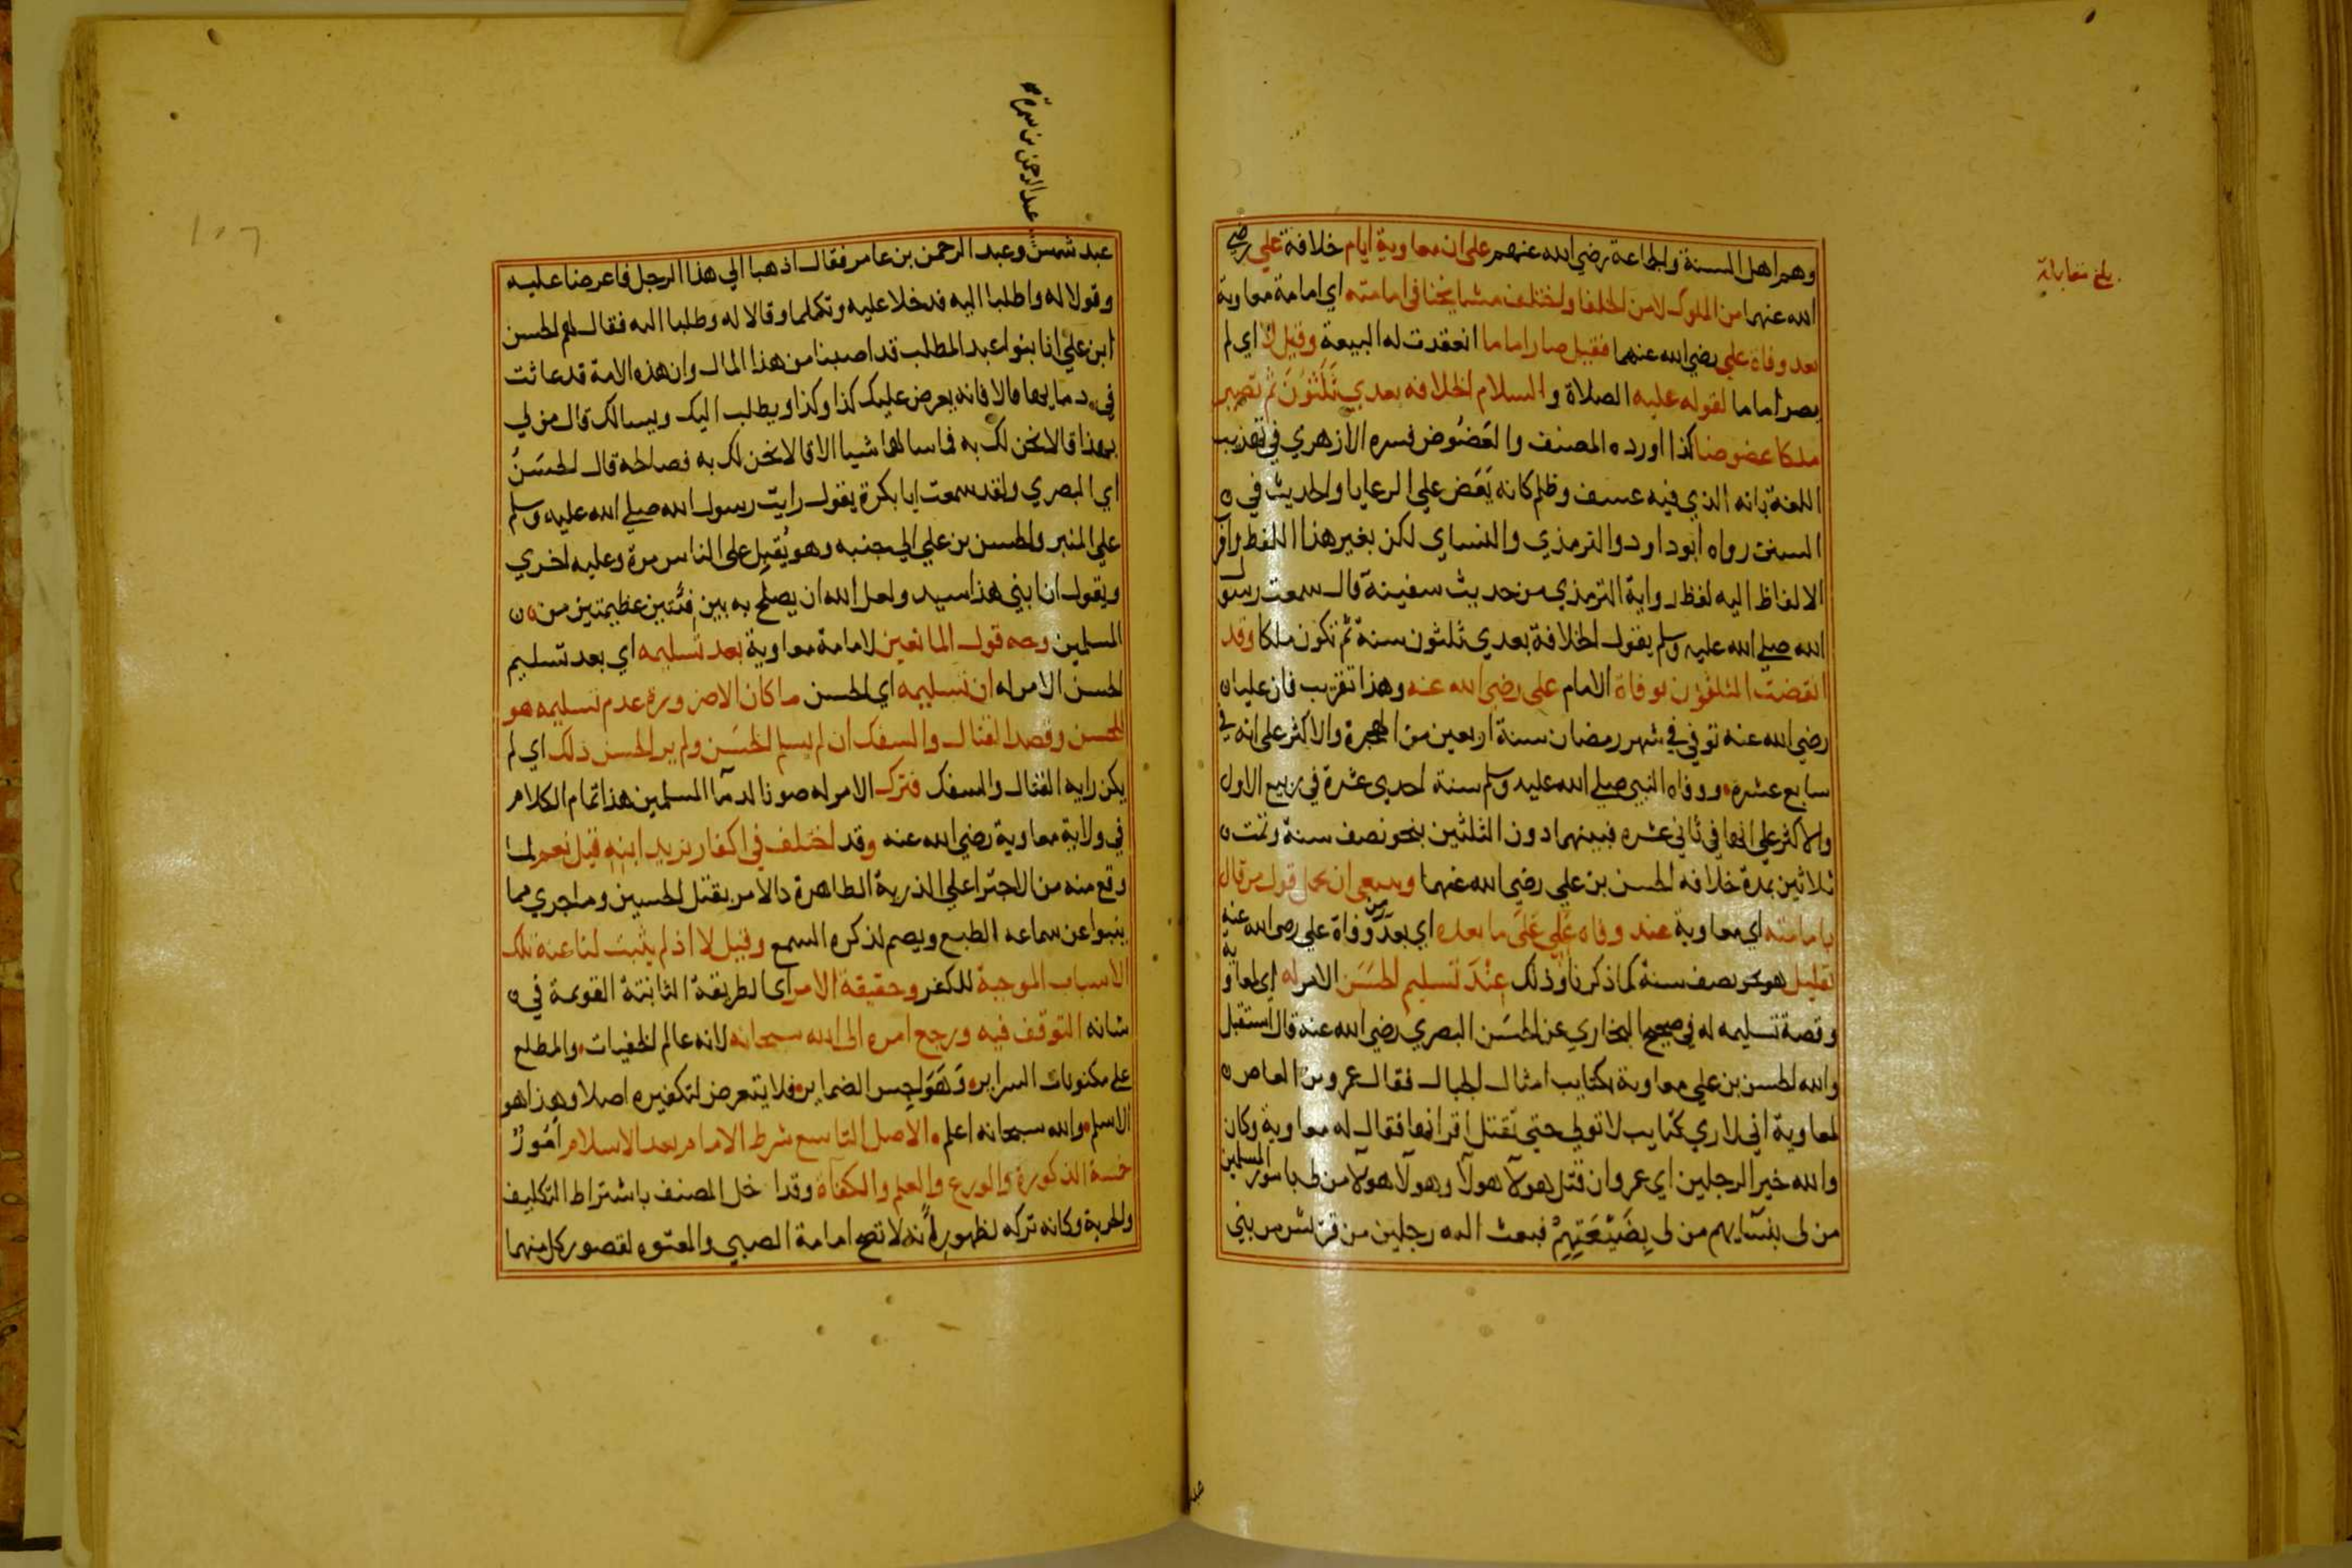 وهم اهل السنة والجماعة رضي الله عنهم على ان معاوية ايام خلافة علي رضي
الله عنهما من الملوك لا من الخلفا واختلف مشايخنا في امامته اي امامة معاوية
بعد وفاة علي رضي الله عنهما فقيل صار اماما انعقدت له البيعة وقيل لا اي لم
يصر اماما لقوله عليه الصلاة والسلام الخلافه بعدي ثلثون ثم تصير
ملكا عضوضا كذا اورده المصنف والعضوض فسره الازهري في تهذيب
اللغة بانه الذي فيه عسف وظلم كانه يعض علي الرعايا والحديث في
السنن رواه ابوداود والترمذي والنساي لكن بغير هذا اللفظ واقرب
الالفاظ اليه لفظ رواية الترمذي من حديث سفينة قال سمعت رسول
الله صلى الله عليه وسلم يقول الخلافة بعدي ثلثون سنة ثم تكون ملكا وقد
انقضت الثلثون بوفاة الامام علي رضي الله عنه وهذا تقريب فان عليا
رضي الله عنه توفي في شهر رمضان سنة اربعين من الهجرة والاكثر على انه في
سابع عشره ووفاه النبي صلى الله عليه وسلم سنة احدي عشرة في ربيع الاول
والاكثر علي انها في ثاني عشره فبينهما دون الثلثين بنحو نصف سنة وتمت
ثلاثين بمدة خلافه الحسن بن علي رضي الله عنهما وينبغي ان يحمل قول من قال
بامامته اي معاوية عند وفاه علي على ما بعده اي بعد من وفاة علي رضي الله عنه
بقليل هو نحو نصف سنة كما ذكرنا وذلك عند تسليم الحسن الامر له اي لمعاوية
وقصة تسليمه له في صحيح البخاري عن الحسن البصري رضي الله عنه قال استقبل
والله الحسن بن علي معاوية بكتايب امثال الجبال فقال عمرو بن العاص
لمعاوية اني لاري كتايب لا تولي حتى تقتل اقرانها فقال له معاوية وكان
والله خير الرجلين اي عمرو ان قتل هولآ هولآ وهولآ هولآ من لي بامور المسلمين
من لي بنسآيهم من لي بضيعتهم فبعث اليه رجلين من قريش من بني
بلغ مقابلة
عبد شمس وعبد الرحمن بن عامر فقال اذهبا الي هذا الرجل فاعرضا عليه
وقولا له واطلبا اليه فدخلا عليه وتكلما وقالا له وطلبا اليه فقال لهم الحسن
ابن علي انا بنوا عبد المطلب قد اصبنا من هذا المال وان هذه الامة قد عاثت
في دمايها قالا فانه يعرض عليك كذا وكذا ويطلب اليك ويسالك قال من لي
بهذا قالا نحن لك به فما سالهما شيا الا قالا نحن لك به فصالحه قال الحسن
اي البصري ولقد سمعت ابا بكرة يقول رايت رسول الله صلى الله عليه وسلم
علي المنبر والحسن بن علي الي جنبه وهو يقبل على الناس مرة وعليه اخري
ويقول ان ابني هذا سيد ولعل الله ان يصلح به بين فئتين عظيمتين من
المسلمين وجه قول المانعين لامامة معاوية بعد تسليمه اي بعد تسليم
الحسن الامر له ان تسليمه اي الحسن ما كان الا ضرورة عدم تسليمه هو
للحسن وقصد القتال والسفك ان لم يسلم الحسن ولم ير الحسن ذلك اي لم
يكن رايه القتال والسفك فترك الامر له صونا لدمآ المسلمين هذا تمام الكلام
في ولاية معاوية رضي الله عنه وقد اختلف في اكفار يزيد ابنه فقيل نعم لما
وقع منه من الاجترا علي الذرية الطاهرة كالامر بقتل الحسين وما جري مما
ينبوا عن سماعه الطبع ويصم لذكره السمع وقيل لا اذ لم يثبت لنا عنه تلك
الاسباب الموجبة للكفر وحقيقة الامر اي الطريقة الثابتة القويمة في
شانه التوقف فيه ورجع امره الى الله سبحانه لانه عالم الخفيات والمطلع
على مكنونات السراير وهواجس الضماير فلا يتعرض لتكفيره اصلا وهذا هو
الاسلم والله سبحانه اعلم الاصل التاسع شرط الامام بعد الاسلام امور
خمسة الذكورة والورع والعلم والكفآة وقد اخل المصنف باشتراط التكليف
والحرية وكانه تركه لظهور انه لا تصح امامة الصبي والمعتوه لقصور كل منهما
عبد الرحمن بن سمرة
١٠٦